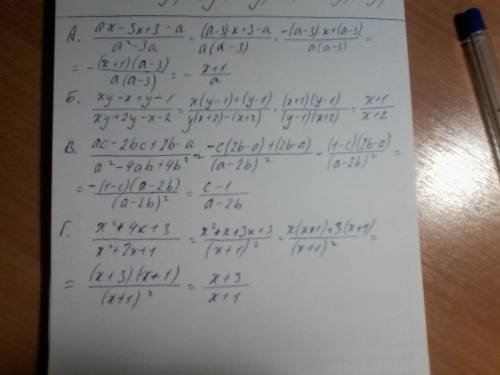 А. (ax-3x+3-a)/(a²-3a) = ((a-3)x+3-a)/(a(a-3)) = (-(a-3)x+(a-3))/(a(a-3)) =
= -((x+1)(a-3))/(a(a-3)) = -(x+1)/a
Б. (xy-x+y-1)/(xy+2y-x-2) = (x(y-1)+(y-1))/(y(x+2)-(x+2)) = ((x+1)(y-1))/((y-1)(x+2)) = (x+1)/(x+2)
В. (ac-2bc+2b-a)/(a²-4ab+4b²) = (-c(2b-a)+(2b-a))/((a-2b)²) = ((1-c)(2b-a))/((a-2b)²) =
= (-(1-c)(a-2b))/((a-2b)²) = (c-1)/(a-2b)
Г. (x²+4x+3)/(x²+2x+1) = (x²+x+3x+3)/((x+1)²) = (x(x+1)+3(x+1))/((x+1)²) =
= ((x+3)(x+1))/((x+1)²) = (x+3)/(x+1)